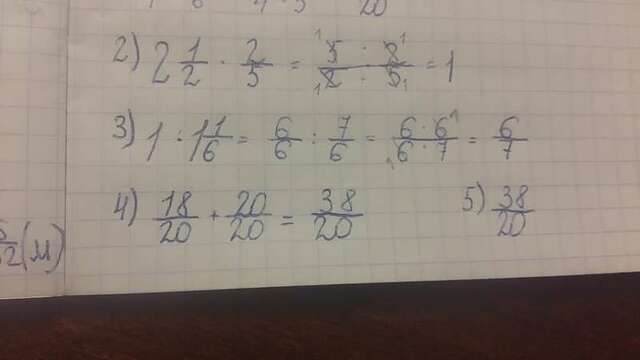 2) 2 1/2 · 2/5 = 5 · 2 / 2 · 5 = 1
3) 1 : 1 1/6 = 6/6 : 7/6 = 6 · 6 / 6 · 7 = 6/7
4) 18/20 + 20/20 = 38/20
5) 38/20
(м)